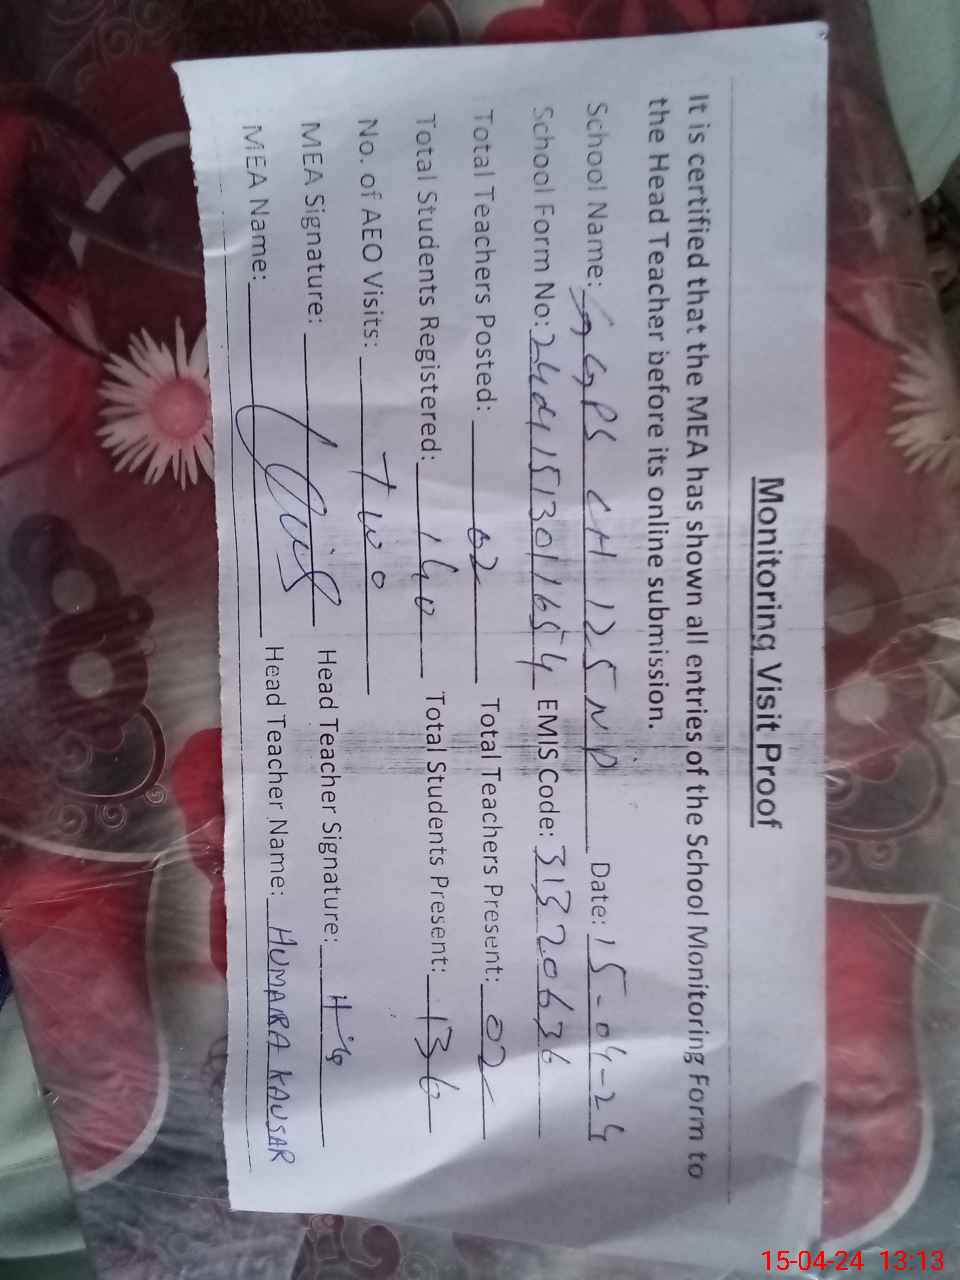 Monitoring Visit Proof
It is certified that the MEA has shown all entries of the School Monitoring Form to
the Head Teacher before its online submission.
School Name: GGPS CH 125 NP Date: 15-04-24
School Form No: EMIS Code: 31320636
Total Teachers Posted: 02 Total Teachers Present: 02
Total Students Registered: 140 Total Students Present: 136
No. of AEO Visits: Two
MEA Signature: Head Teacher Signature:
MEA Name: Head Teacher Name: HUMAIRA KAUSAR
15-04-24 13:13